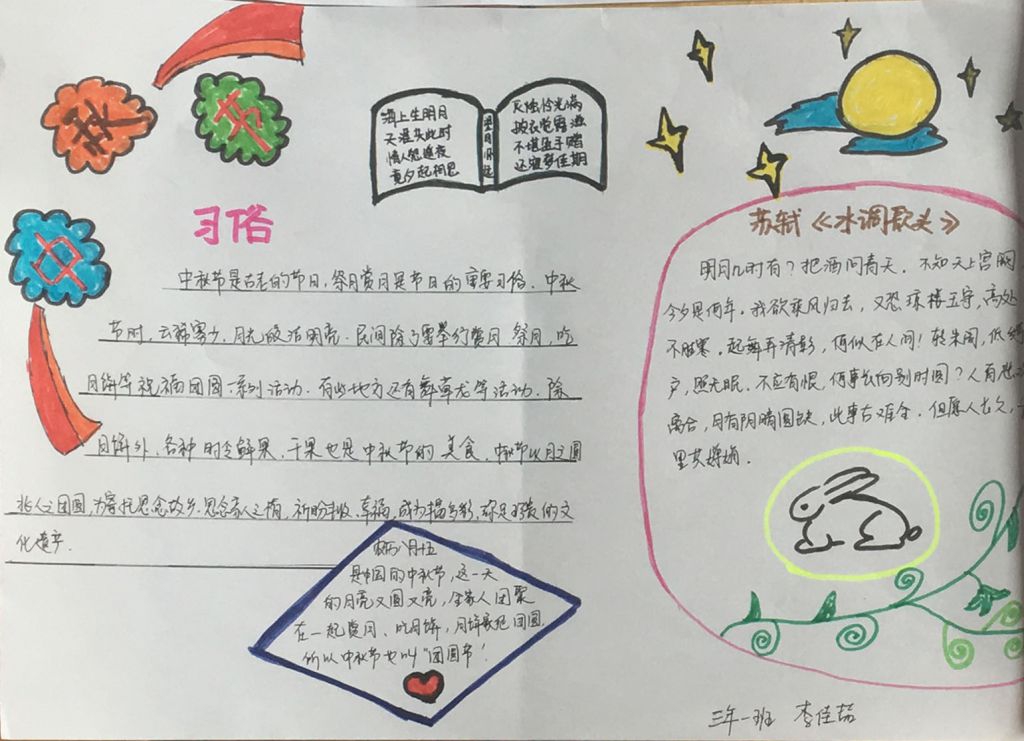 中
秋
节
习俗
中秋节是古老的节日,祭月赏月是节日的重要习俗。中秋
节时,云稀雾少,月光皎洁明亮,民间除了要举行赏月、祭月,吃
月饼等祝福团圆一系列活动,有些地方还有舞草龙等活动。除
月饼外,各种时令鲜果、干果也是中秋节的美食。中秋节以月之圆
兆人之团圆,为寄托思念故乡,思念亲人之情,祈盼丰收、幸福,成为多彩,弥足珍贵的文
化遗产。
海上生明月
天涯共此时
情人怨遥夜
竟夕起相思
望月怀远
灭烛怜光满
披衣觉露滋
不堪盈手赠
还寝梦佳期
农历八月十五
是中国的中秋节,这一天
的月亮又圆又亮,全家人团聚
在一起赏月、吃月饼,月饼象征团圆,
所以中秋节也叫“团圆节”!
苏轼《水调歌头》
明月几时有?把酒问青天。不知天上宫阙
今夕是何年。我欲乘风归去,又恐琼楼玉宇,高处
不胜寒。起舞弄清影,何似在人间!转朱阁,低绮
户,照无眠。不应有恨,何事长向别时圆?人有悲欢
离合,月有阴晴圆缺,此事古难全。但愿人长久,千
里共婵娟。
三年一班 李佳喆